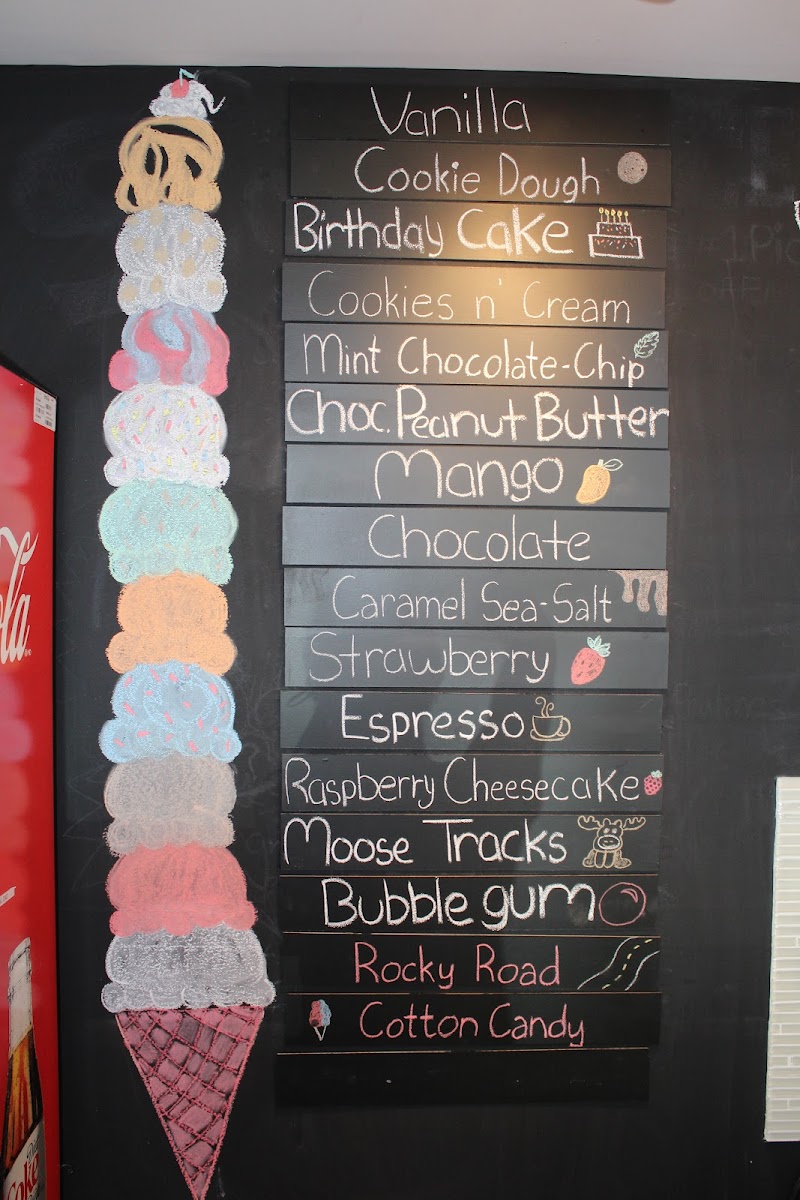 Vanilla
Cookie Dough
Birthday Cake
Cookies n' Cream
Mint Chocolate-Chip
Choc. Peanut Butter
Mango
Chocolate
Caramel Sea-Salt
Strawberry
Espresso
Raspberry Cheesecake
Moose Tracks
Bubble gum
Rocky Road
Cotton Candy
Coke